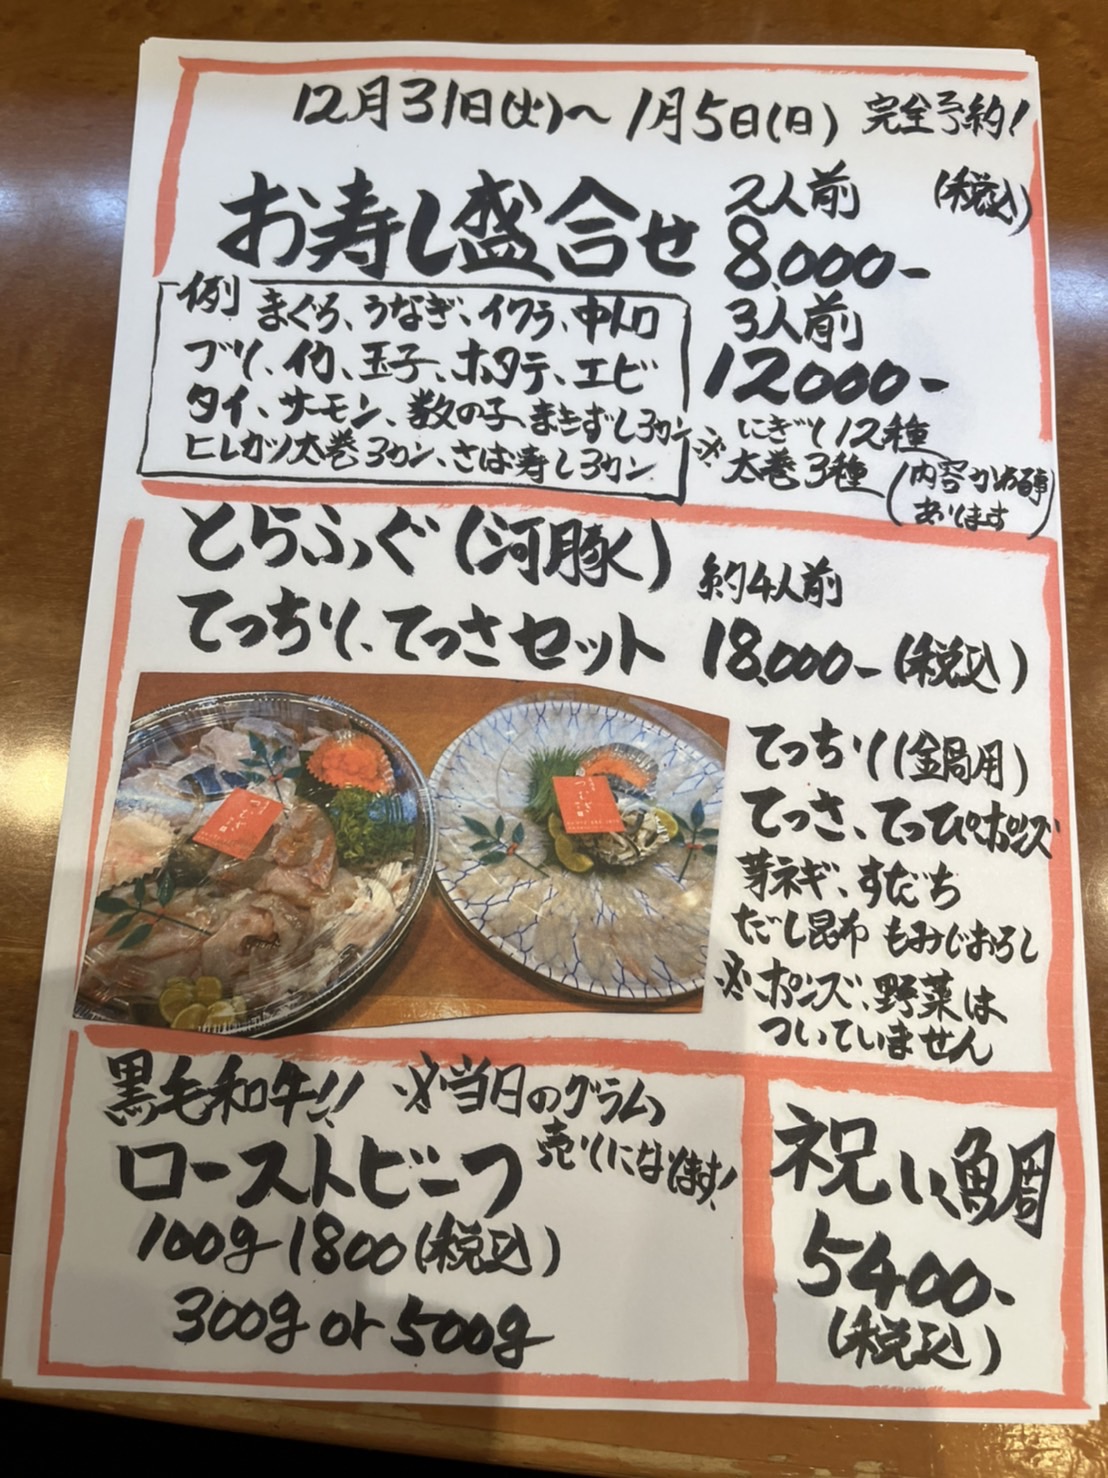 12月31日(火)〜1月5日(日) 完全予約!
お寿し盛合せ
2人前 (税込)
8,000-
3人前
12000-
例 まぐろ、うなぎ、イクラ、中トロ
ブリ、イカ、玉子、ホタテ、エビ
タイ、サーモン、数の子、まきずし3カン
ヒレカツ太巻3カン、さば寿し3カン
※にぎり12種
太巻3種
(内容かわる事
あります)
とらふぐ(河豚) 約4人前
てっちり、てっさセット 18,000-(税込)
てっちり(鍋用)
てっさ、てっぴポンズ
芽ネギ、すだち
だし昆布 もみじおろし
※ポンズ、野菜は
ついていません
黒毛和牛!! ※当日のグラム
売りになります!
ローストビーフ
100g 1800(税込)
300g or 500g
祝い鯛
5400-
(税込)